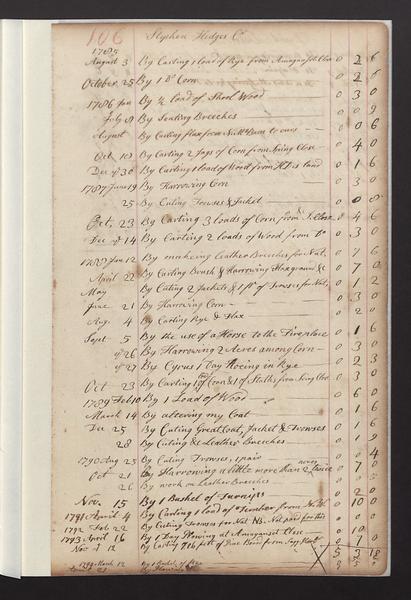 106 Stephen Hedges Cr
1785
August 3 By Carting 1 load of Rye from Amaganset Close 0 2 6
October 25 By 1 Do Corn 0 2 6
1786 Jan By ½ load of Wood 0 3 0
July 8 By Seating Breeches 0 0 9
August By Carting flax from to ours 0 0 6
Oct 10 By Carting 2 Jags of Corn from Spring Close 0 4 0
Decr 30 By Carting 1 load of Wood from land 0 1 6
1787 June 19 By Harrowing Corn 0 3 0
25 By Cuting Trowses & Jacket 0 0 8
Oct. 23 By Carting 3 loads of Corn from S. Close 0 4 6
Decr 14 By Carting 2 loads of Wood from Do 0 3 0
1788 Jan 12 By makeing Leather Breeches for Nat. 0 7 6
April 22 By Carting Brush & Harrowing flax ground &c 0 7 0
May By Cuting 2 Jackets & 1 pr of Trowses for Nat. 0 1 2
June 21 By Harrowing Corn 0 3 0
Aug. 4 By Carting Rye & flax 0 2 0
Sept 5 By the use of a Horse to the Fireplace 0 1 6
26 By Harrowing 2 Acres among Corn 0 3 0
27 By Cyrus 1 Day Hoeing in Rye 0 2 3
Oct 23 By Carting 1 of Corn & 1 of Stalks from Spring Close 0 3 0
1789 Feb 10 By 1 Load of Wood 0 6 0
March 14 By altering my Coat 0 1 6
Dec 25 By Cuting Great Coat, Jacket & Trowses 0 1 6
28 By Cuting Leather Breeches 0 1 9
1790 Aug 25 By Cuting Trowses, 1 pair 0 0 4
Oct 21 By Harrowing a little more than 2 acres twice 0 7 0
26 By work on Leather Breeches 0
Nov. 15 By 1 Bushel of Turnips 0 2 0
1791 April 4 By Carting 1 load of Timber from 0 10 0
1792 Feb 22 By Cuting Trowses for Nat NB. Nat paid for this 0
1793 April 16 By 1 Day Plowing at Amaganset Close 0 10 0
Nov 12 By Carting 716 feet of Pine Bord from Sag 0 7 0
5 3 18
1794 March 12 By 1 Bushel of Rye